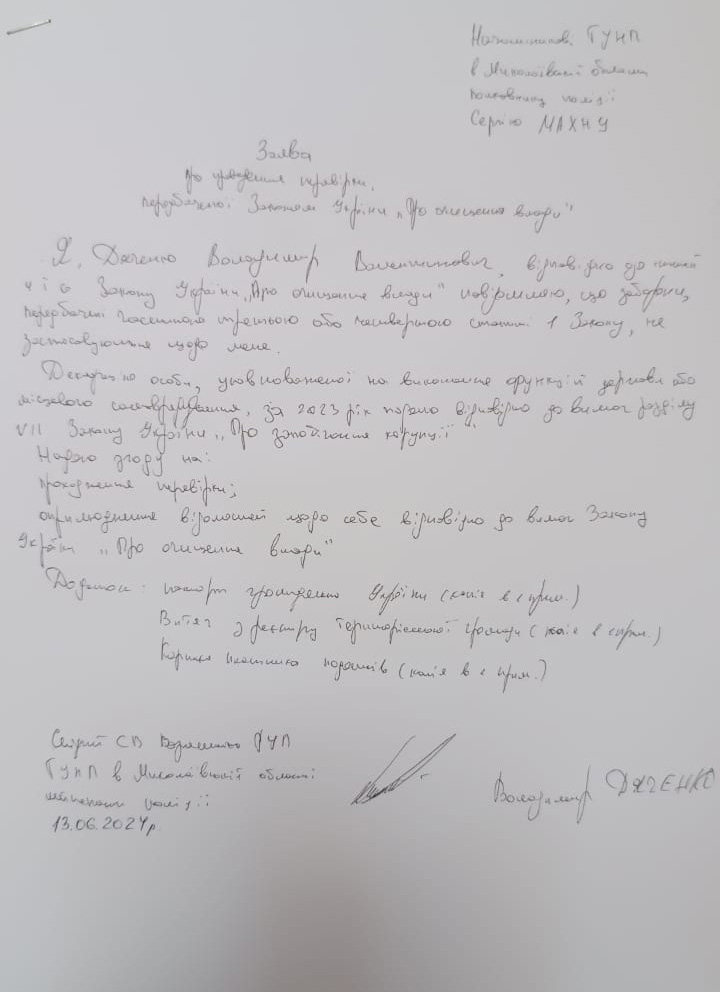 Начальникові ГУНП
в Миколаївській області
полковнику поліції
Сергію МАХНУ
Заява
про проведення перевірки,
передбаченої Законом України „Про очищення влади"
Я, Дяченко Володимир Валентинович, відповідно до статей
4 і 6 Закону України „Про очищення влади" повідомляю, що заборони,
передбачені частиною третьою або четвертою статті 1 Закону, не
застосовуються щодо мене.
Декларацію особи, уповноваженої на виконання функцій держави або
місцевого самоврядування, за 2023 рік подано відповідно до вимог розділу
VII Закону України „Про запобігання корупції"
Надаю згоду на:
проходження перевірки;
оприлюднення відомостей щодо себе відповідно до вимог Закону
України „Про очищення влади"
Додаток: паспорт громадянина України (копія в 1 прим.)
Витяг з реєстру територіальної громади (копія в 1 прим.)
Картка платника податків (копія в 1 прим.)
Слідчий СВ РУП
ГУНП в Миколаївській області
поліції
13.06.2024р.
Володимир ДЯЧЕНКО